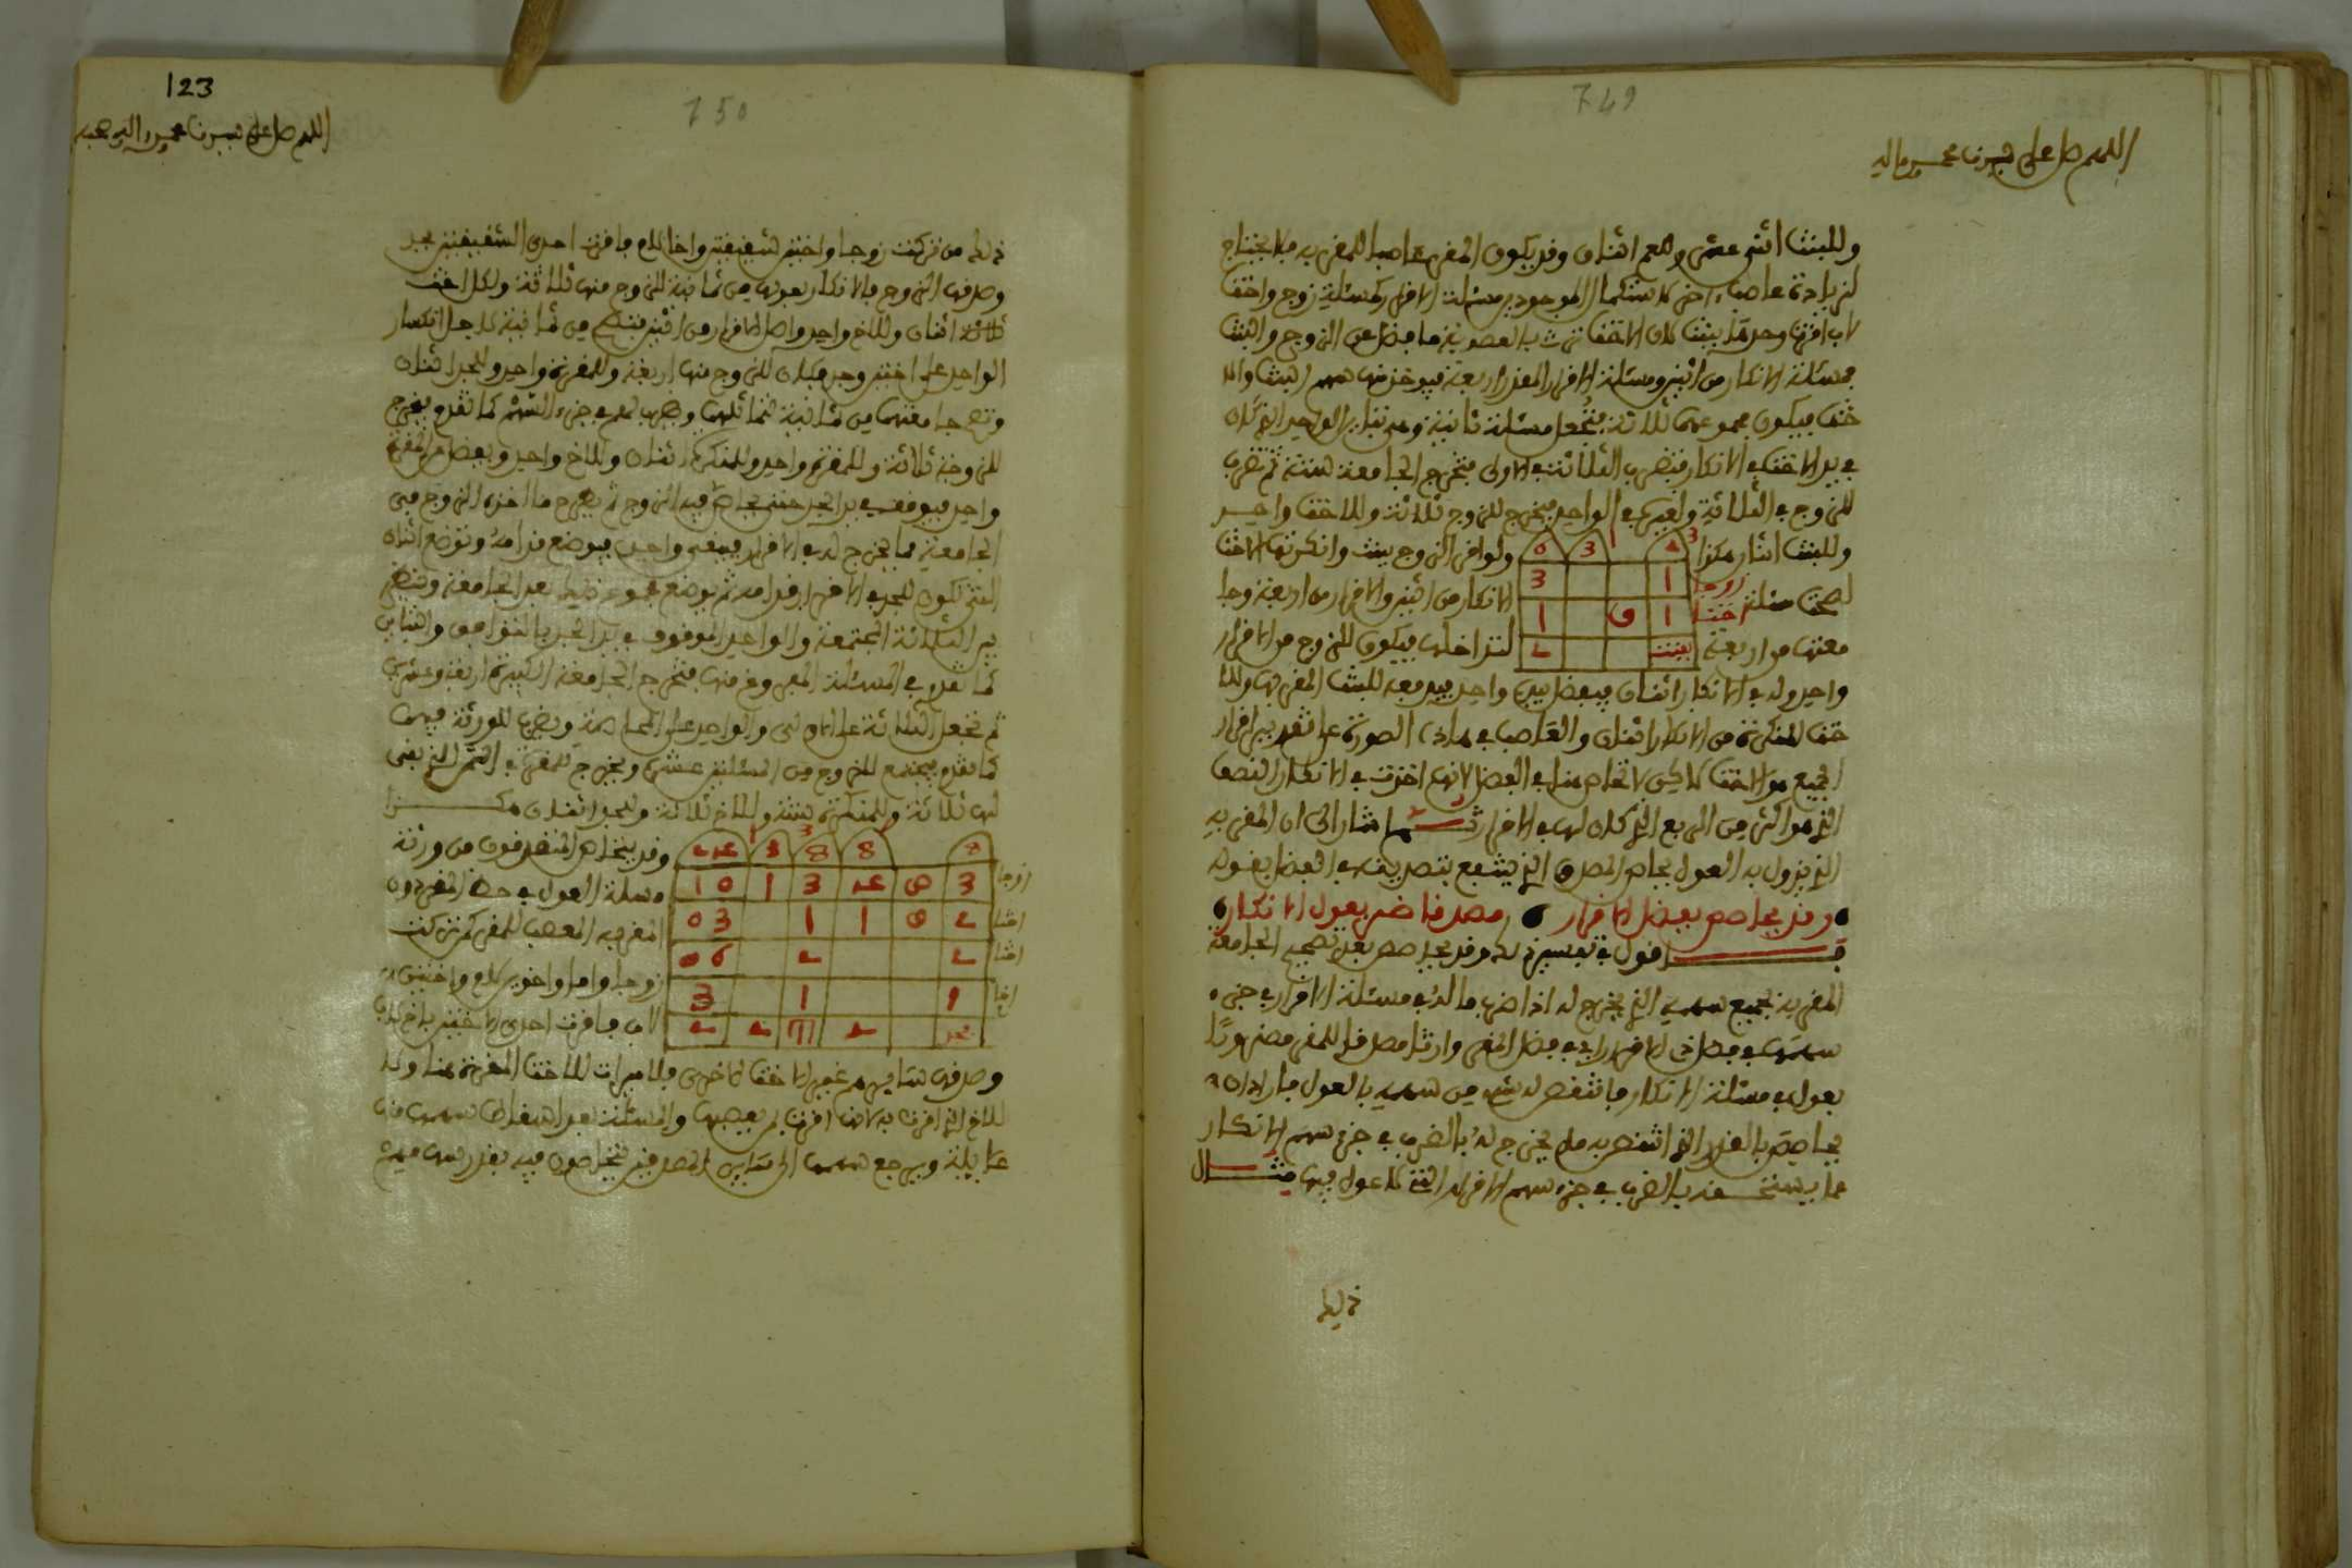 749
اللهم صل على سيدنا محمد واله
وللبنت اثنى عشر وللعم اثنان وقد يكون المقر عاصبا للمقر به فلا يحتاج
لزيادة عاصب اخر لاستكمال الموجود مسئلة الاقرار كمسئلة زوج واخت
لاب اقرت وحدها ببنت لان الاخت ترث بالعصوبة ما فضل عن الزوج والبنت
فمسئلة الانكار من اثنين ومسئلة الاقرار اربعة فيوخذ منها سهم البنت والا
خت فيكون مجموعهما ثلاثة فتجعل مسئلة ثانية وهي تباين الواحد الذي كان
في يد الاخت في الانكار فتضرب الثلاثة في الاولى فتخرج الجامعة ستة ثم تضرب
للزوج في الثلاثة ولغيره في الواحد فيخرج للزوج ثلاثة وللاخت واحد
وللبنت اثنان هكذا
ولو اقر الزوج ببنت وانكرتها الاخت
لصحت مسئلة
الانكار من اثنين والاقرار من اربعة وجا
معتهما من اربعة
لتداخلهما فيكون للزوج من الاقرار
3
6 3 2
زوجا 1 3
اختا 1 و 1
بنت 2
واحد وله في الانكار اثنان فيفضل بيده واحد فيدفعه للبنت المقر بها وللا
خت المنكرة من الانكار اثنان والعاصب في هاذه الصورة على تقدير اقرار
الجميع هو الاخت لاكن لا تخاصم هنا في الفضل لانها اخذت في الانكار النصف
الذي هو اكثر من الربع الذي كان لها في الاقرار ثم اشار الى ان المقر به
الذي يزول به العول يحاصص المصدق الذي ينتفع بتصديقه في الفضل بقوله
وقد يحاصص بفضل الاقرار مصدقا ضر بعول الانكار
اقول في تفسيره له وقد يحاصص بعد تصحيح الجامعة
المقر به بجميع سهمه الذي يخرج له اذا ضرب ما له في مسئلة الاقرار في جزء
سهمها في فضل الاقرار اي في فضل المقر وارثا مصدقا للمقر مضرورا
بعول في مسئلة الانكار فانتقص له شيء من سهمه بالعول فاراد ان
يحاصص بالقدر الذي انتقص به ما يخرج له بالضرب في جزء سهم الانكار
عما يستحقه بالضرب في جزء سهم الاقرار التي لا عول فيها مثال
ذلك
123
750
اللهم صل على سيدنا محمد واله وصحبه
ذلك من تركت زوجا واختين شقيقتين واخا لام فاقرت احدى الشقيقتين بجد
وصدقها الزوج فالانكار بعولها من ثمانية للزوج منها ثلاثة ولكل اخت
اثنان وللاخ واحد واصل الاقرار من اثنين فتصح من ثمانية لاجل انكسار
الواحد على اختين وجد فيكون للزوج منها اربعة وللمقرة واحد وللجد اثنان
وتصح جامعتهما من ثمانية لتماثلهما ويضرب لهم في جزء السهم كما تقدم فيخرج
للزوجة ثلاثة وللمقرة واحد وللمنكرة اثنان وللاخ واحد ويفضل للمقرة
واحد فيوقف في يد الجد حتى يحاصص فيه الزوج ثم يطرح ما اخذه الزوج في
الجامعة مما يخرج له في الاقرار فيبقى واحد فيوضع قدامه وتوضع اثنان
التي تكون للجد في الاقرار قدامه ثم يوضع مجموع ذلك بعد الجامعة وتنظر
بين الثلاثة المجتمعة والواحد الموقوف في يد الجد بالتوافق والتباين
كما تقدم في المسئلة المفروغ منها فتخرج الجامعة الكبيرة اربعة وعشرين
ثم تجعل الثلاثة على الاولى والواحد على المحاصة ويضرب للورثة فيهما
كما تقدم فيجتمع للزوج من المسئلتين عشرة ويخرج للمقرة في الثمن الذي بقى
لها ثلاثة وللمنكرة ستة وللاخ ثلاثة وللجد اثنان هكذا
وقد يتخاصم المتصدقون من ورثة
مسئلة العول في حظ المقر دون
المقر به المعصب للمقر كمن تركت
زوجا واما واخوين لام واختين
لاب فاقرت احدى الاختين باخ لاب
زوجا 3 ص 4 3 1 10
اختا 2 و 1 1 03
اختا 2 2 06
اخا 1 1 3
جد 2 2 2
8 8 8 3 24
وصدقها سائرهم غير الاخت الاخرى فلا ميراث للاخت المقرة هنا ولا
للاخ الذي اقرت به لانها اقرت بمن يعصبها والمسئلة بعد اسقاط سهمها منها
عايلة ويرجع سهمها الى سائر المصدقين فيتحاصون فيه بقدر سهامهم